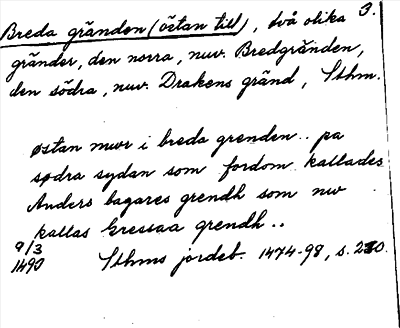 Breda gränden (östan till), två olika 3.
gränder, den norra, nuv. Bredgränden,
den södra, nuv. Drakens gränd, Sthm.
østan mwr i breda grenden.. pa
sødra sydan som fordom kallades
Anders bagares grendh som nw
kallas Gressaa grendh..
9/3
1490 Sthms jordeb. 1474-98, s. 230.